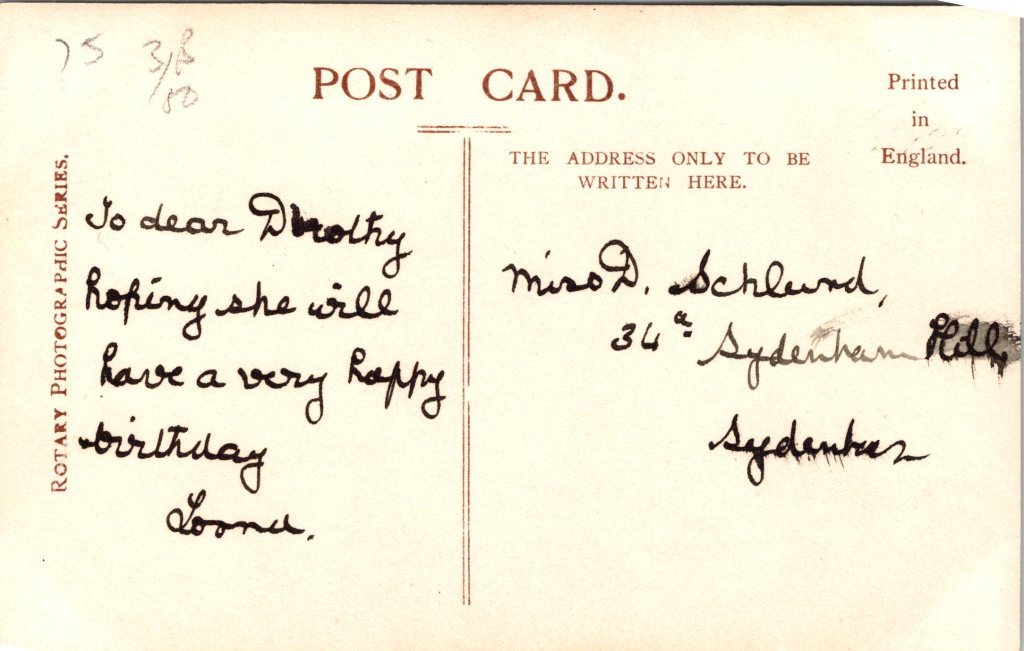 75 3/B
50
POST CARD.
Printed
in
England.
THE ADDRESS ONLY TO BE
WRITTEN HERE.
ROTARY PHOTOGRAPHIC SERIES.
To dear Dorothy
hoping she will
have a very happy
birthday
Lorna.
Miss D. Schlund,
34a Sydenham Hill
Sydenham